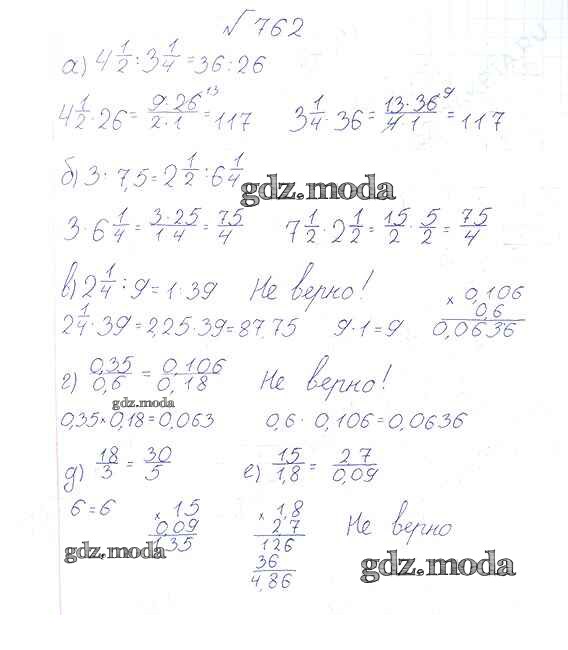 № 762
а) 4 1/2 : 3 1/4 = 36 : 26
4 1/2 · 26 = 9·26/2·1 13 = 117   3 1/4 · 36 = 13·36/4·1 9 = 117
б) 3 · 7,5 = 2 1/2 : 6 1/4
gdz.moda
3 · 6 1/4 = 3·25/1·4 = 75/4   7 1/2 · 2 1/2 = 15/2 · 5/2 = 75/4
в) 2 1/4 : 9 = 1 · 39   Не верно!   × 0,106
2 1/4 · 39 = 2,25 · 39 = 87,75   9 · 1 = 9   0,6
0,0636
г) 0,35/0,6 = 0,106/0,18   Не верно!
gdz.moda
0,35 × 0,18 = 0,063   0,6 · 0,106 = 0,0636
д) 18/3 = 30/5   е) 15/1,8 = 2,7/0,09
6 = 6   × 15   × 1,8   Не верно
0,09   2,7
1,35   126
36
4,86
gdz.moda   gdz.moda